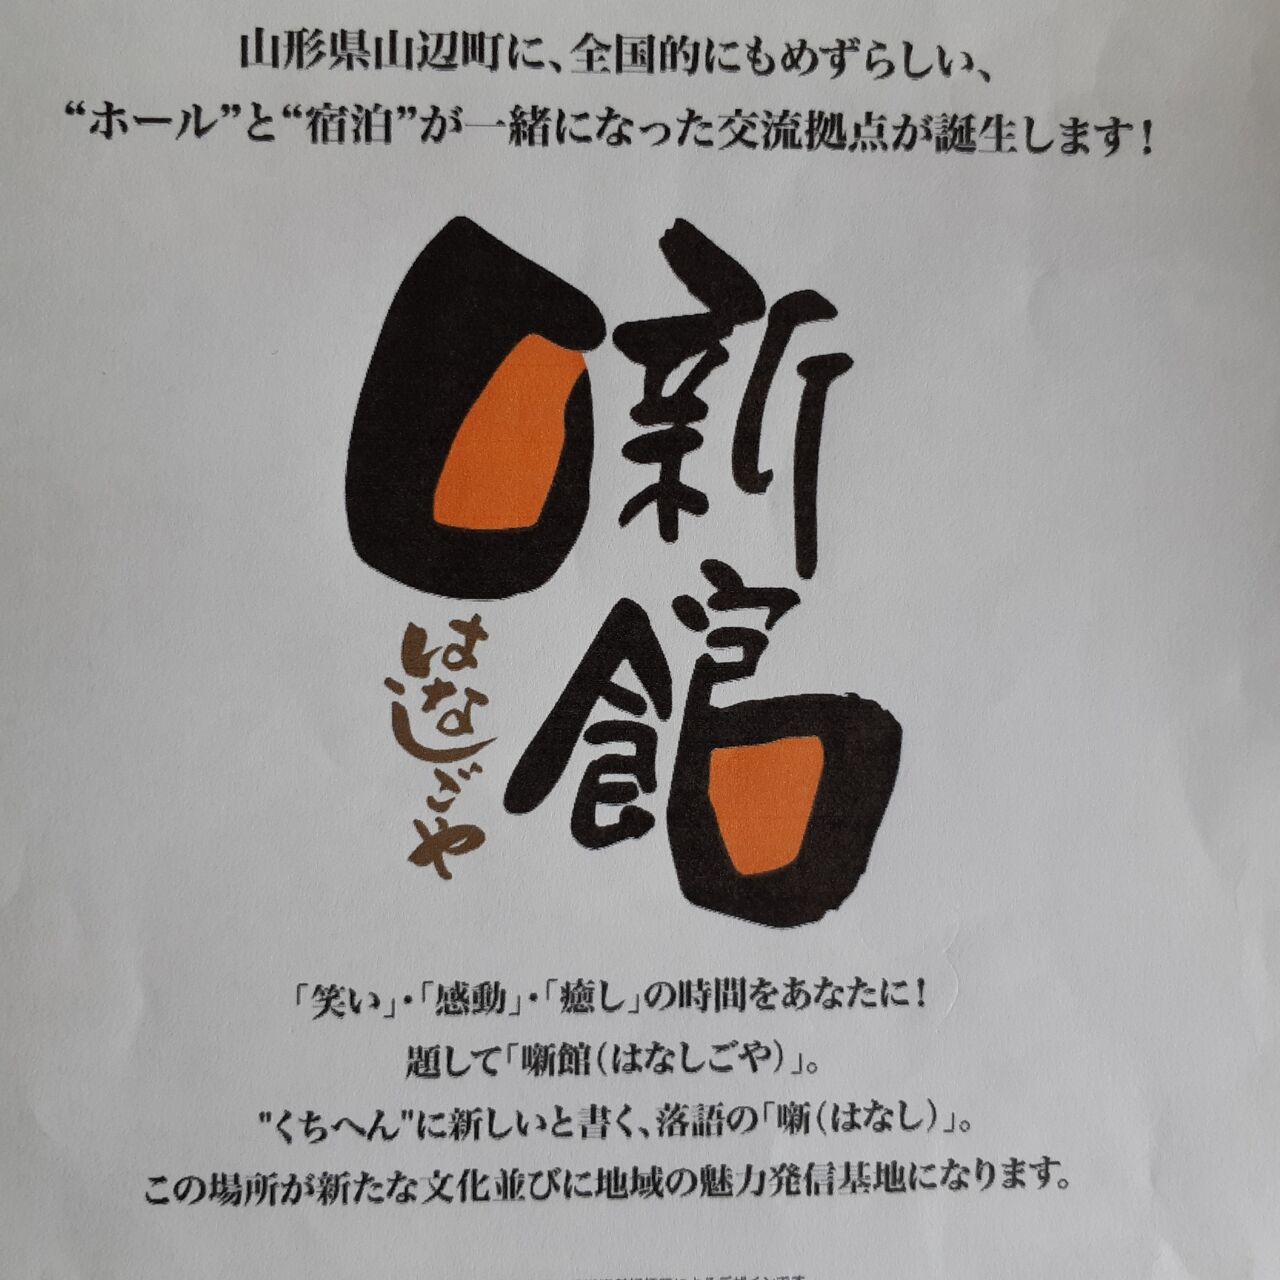 山形県山辺町に、全国的にもめずらしい、
“ホール”と“宿泊”が一緒になった交流拠点が誕生します！
噺館
はなしごや
「笑い」・「感動」・「癒し」の時間をあなたに！
題して「噺館（はなしごや）」。
"くちへん"に新しいと書く、落語の「噺（はなし）」。
この場所が新たな文化並びに地域の魅力発信基地になります。